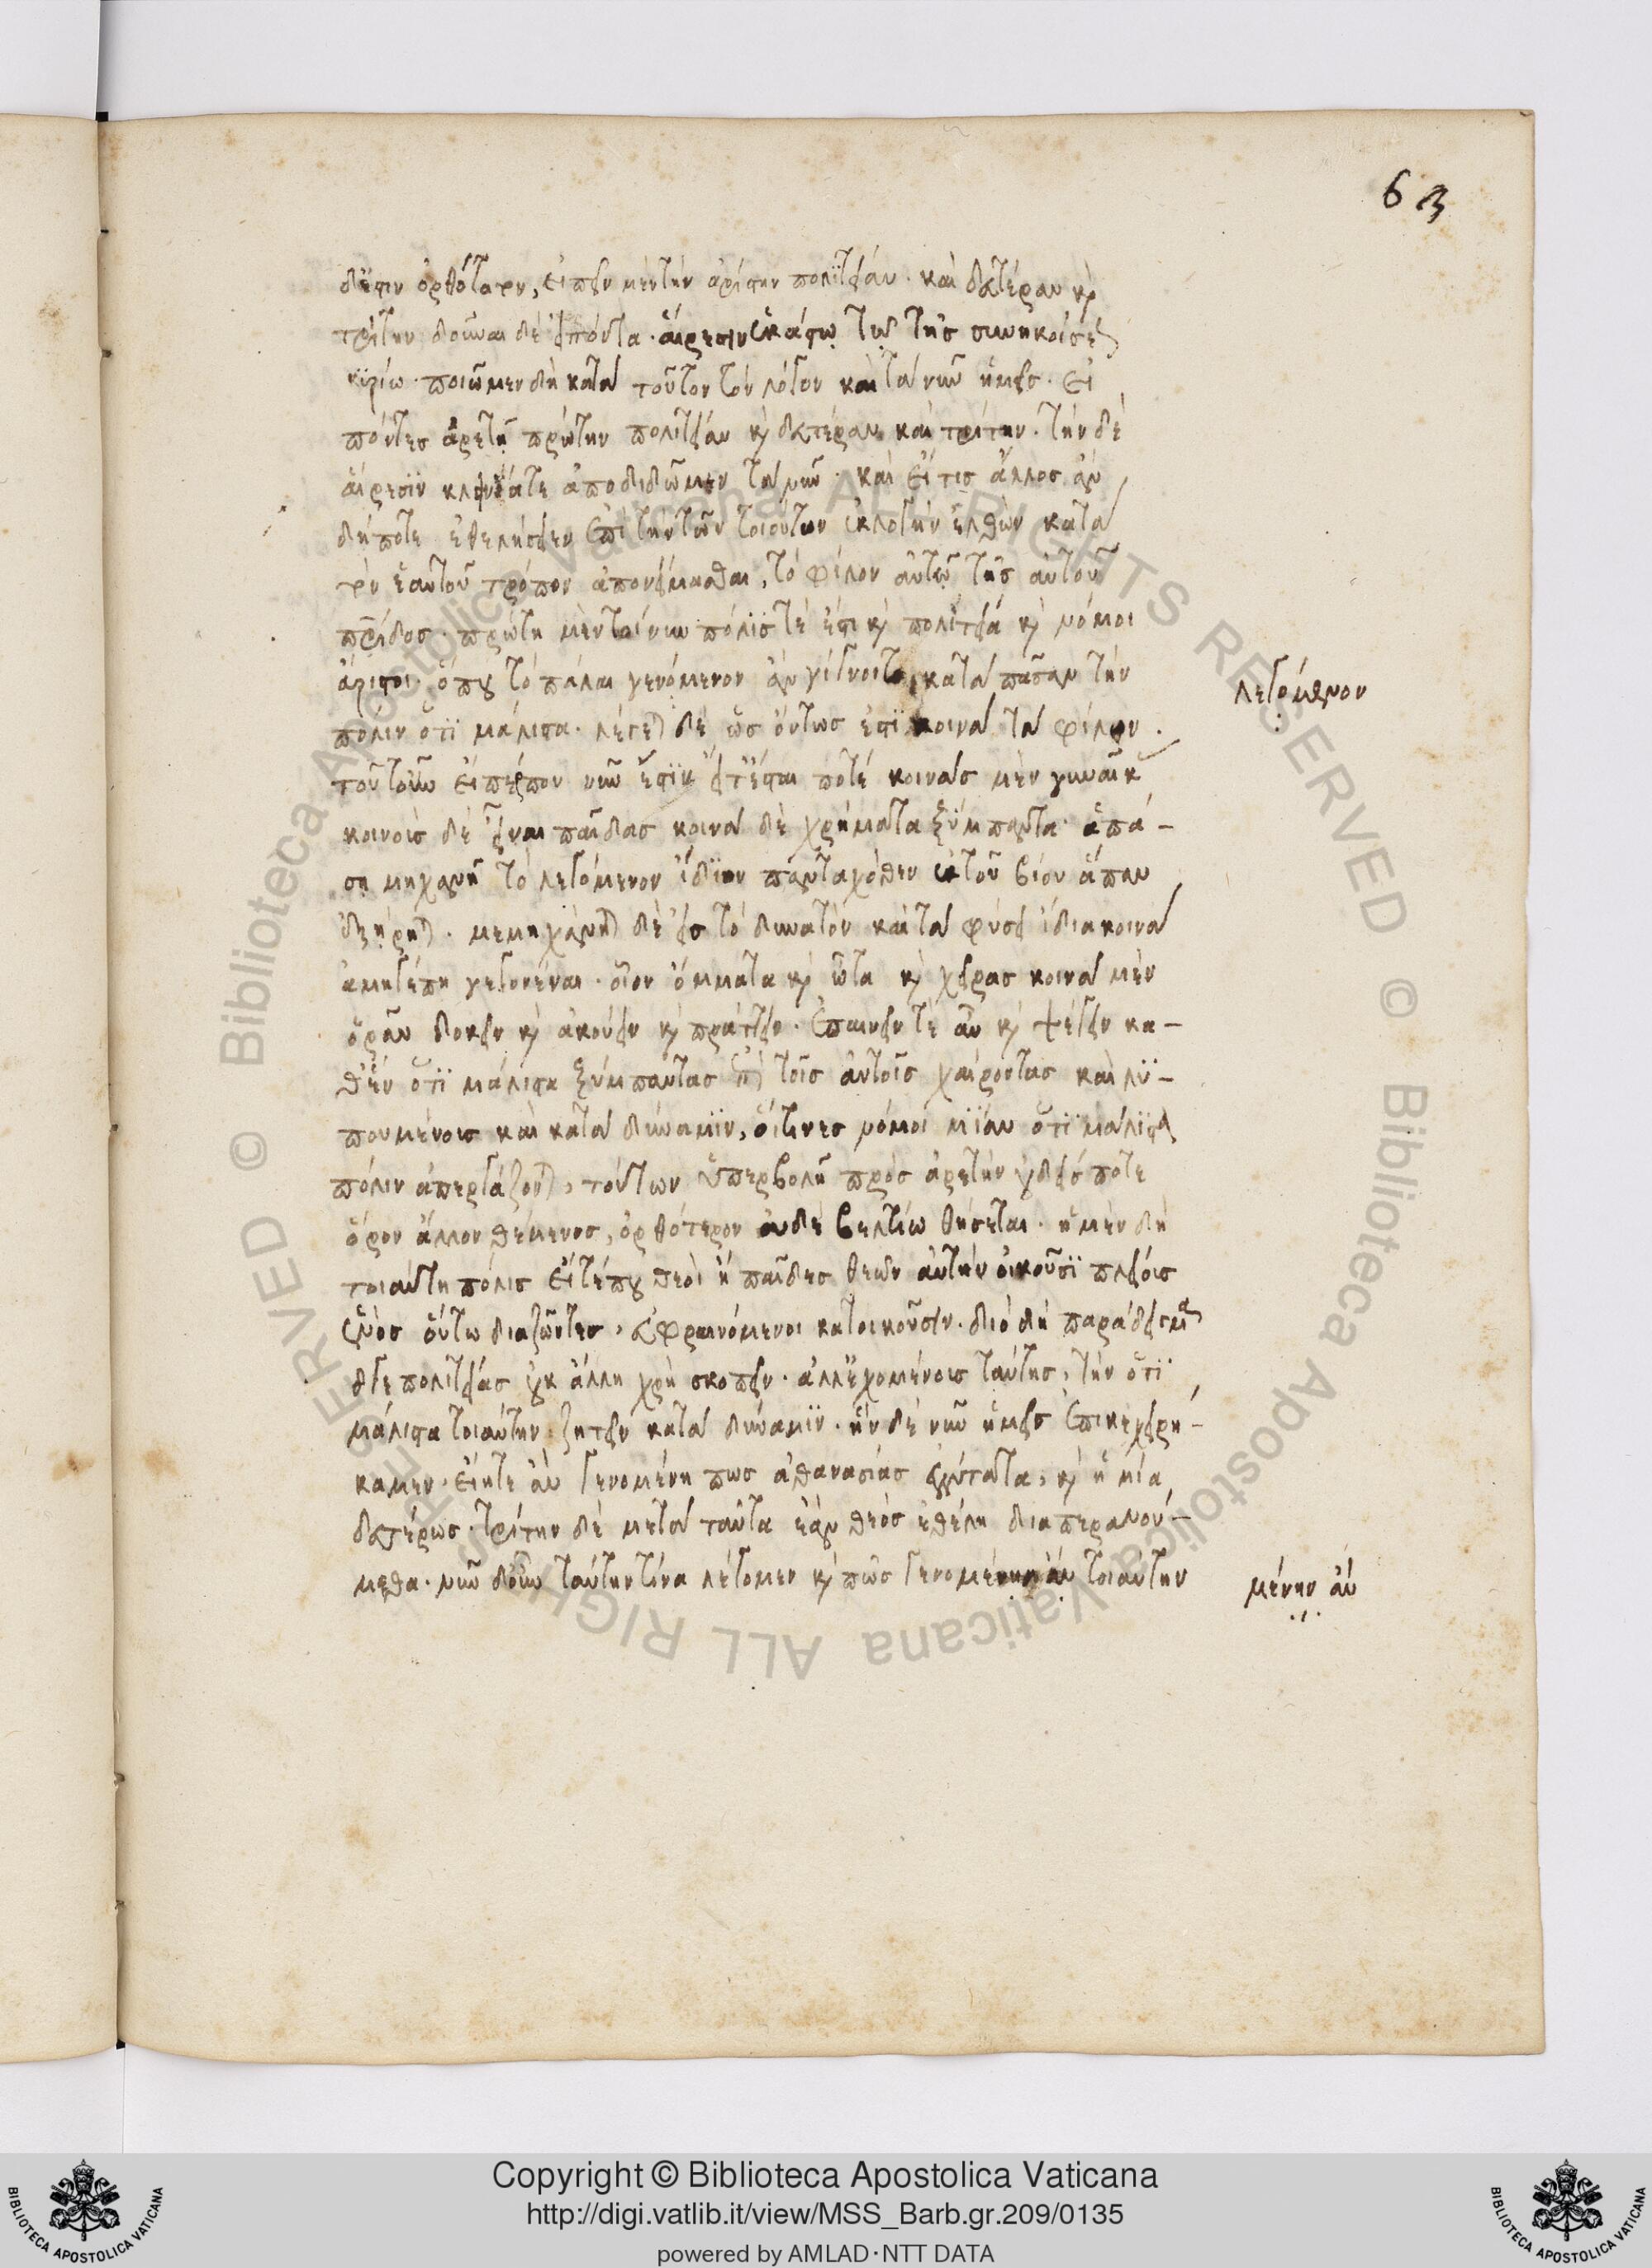 63
δ' ἐστὶν ὀρθότατον, εἰπεῖν μὲν τὴν ἀρίστην πολϊτείαν· καὶ δευτέραν κὶ
τρίτην δοῦναι δὲ εἰπόντα· αἵρεσιν ἑκάστῳ τῷ τῆς συνηκοίσε
κϋρίω· ποιῶμεν δὴ κατὰ τοῦτον τὸν λόγον καὶ τὰ νῦν ἡμεῖς· εἰ
πόντες ἀρετῇ πρώτην πολιτείαν κὶ δευτέραν καὶ τρίτην· τὴν δὲ
αἵρεσϊν κλεινία τε ἀποδιδῶμεν τὰ νῦν· καὶ εἴ τις ἄλλος ἂν
δήποτε ἐθελήσειεν ἐπὶ τὴν τῶν τοιούτων ἐκλογὴν ἐλθὼν κατὰ
τὸν ἑαυτοῦ τρόπον ἀπονείμασθαι, τὸ φίλον αὐτῷ τῆς αὑτοῦ
πρίδος· πρώτη μὲν τοίνυν πόλϊς τέ ἐστι κὶ πολιτεία κὶ νόμοι
ἄριστοι· ὅπου τὸ πάλαι γενόμενον ἂν γίγνοιτο κατὰ πᾶσαν τὴν
λεγόμενον
πόλιν ὅτϊ μάλιστα· λέγεται δὲ ὡς ὄντως ἐστϊ κοινὰ τὰ φίλων·
τοῦτ' οὖν εἴ που νῦν ἔστϊν εἴτ' ἔσται ποτέ κοινὰς μὲν γυναῖκ
κοινοὺς δὲ εἶναι παῖδας κοινὰ δὲ χρήματα ξύμπαντα· ἁπά-
σῃ μηχανῇ τὸ λεγόμενον ἴδϊον πανταχόθεν ἐκ τοῦ βίου ἅπαν
ἐξῄρηται· μεμηχάνηται δὲ εἰς τὸ δυνατὸν καὶ τὰ φύσει ἴδια κοινὰ
ἁμηγέπη γεγονέναι· οἷον ὄμματα κὶ ὦτα κὶ χεῖρας κοινὰ μὲν
ὁρᾶν δοκεῖν κὶ ἀκούειν κὶ πράττειν· ἐπαινεῖν τε αὖ κὶ ψέγειν κα-
θ' ἓν ὅτϊ μάλιστα ξύμπαντας ἐπὶ τοῖς αὐτοῖς χαίροντας καὶ λϋ-
πουμένους καὶ κατὰ δύναμϊν, οἵτινες νόμοι μϊαν ὅτϊ μάλϊστα
πόλιν ἀπεργάζονται, τούτων ὑπερβολῇ πρὸς ἀρετὴν οὐδείς ποτε
ὅρον ἄλλον θέμενος, ὀρθότερον οὐδὲ βελτίω θήσεται· ἡ μὲν δὴ
τοιαύτη πόλις εἴτέ που θεοὶ ἢ παῖδες θεῶν αὐτὴν οἰκοῦσϊ πλείους
ἑνὸς οὕτω διαζῶντες, εὐφραινόμενοι κατοικοῦσιν· διὸ δὴ παράδειγμα
θγε πολιτείας οὐκ ἄλλη χρὴ σκοπεῖν· ἀλλ' ἐχομένους ταύτης, τὴν ὅτϊ
μάλιστα τοιαύτην ζητεῖν κατὰ δύναμϊν· ἣν δὲ νῦν ἡμεῖς ἐπικεχειρή-
καμεν· εἴητε ἂν γενομένη πως ἀθανασίας ἐγγύτατα, κὶ ἡ μία
δευτέρως· τρίτην δὲ μετὰ ταῦτα ἐὰν θεὸς ἐθέλη διαπερανού-
μεθα· νῦν δ' οὖν ταύτην τίνα λέγομεν κὶ πῶς γενομένην ἂν τοιαύτην
μένην ἂν
Copyright © Biblioteca Apostolica Vaticana
http://digi.vatlib.it/view/MSS_Barb.gr.209/0135
powered by AMLAD·NTT DATA